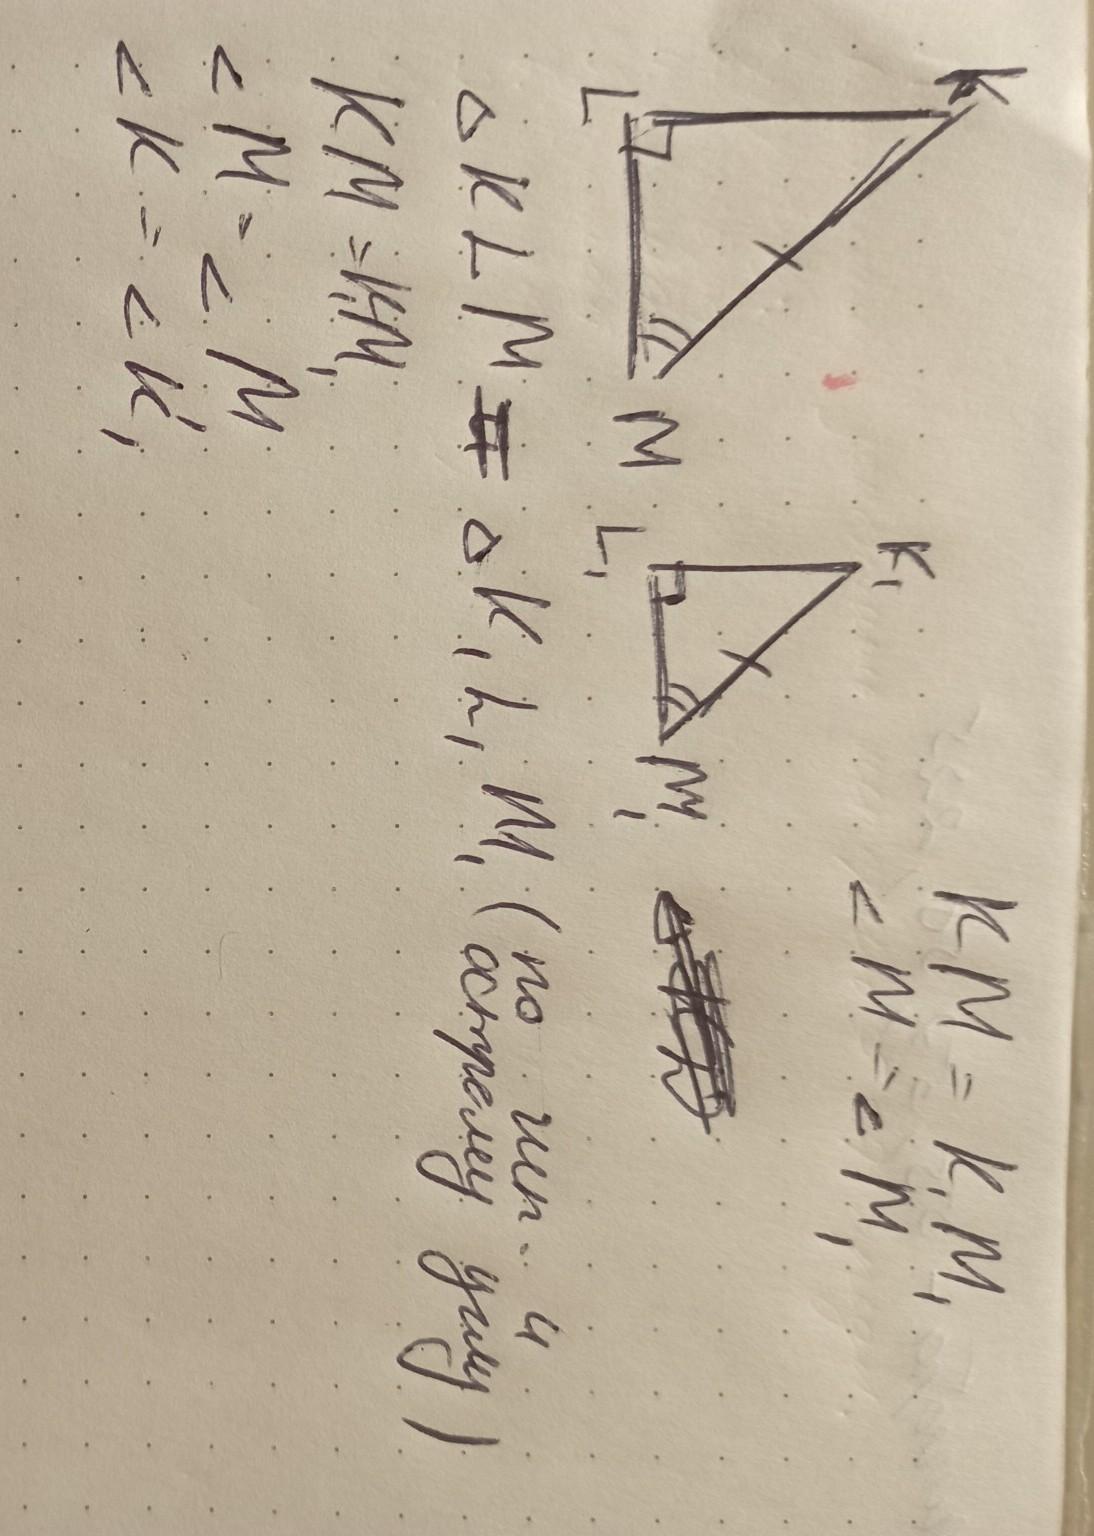 K
L
M
K₁
L₁
M₁
KM = K₁M₁
<M = <M₁
△KLM = △K₁L₁M₁ (по гип. и
острому углу)
KM = K₁M₁
<M = <M₁
<K = <K₁